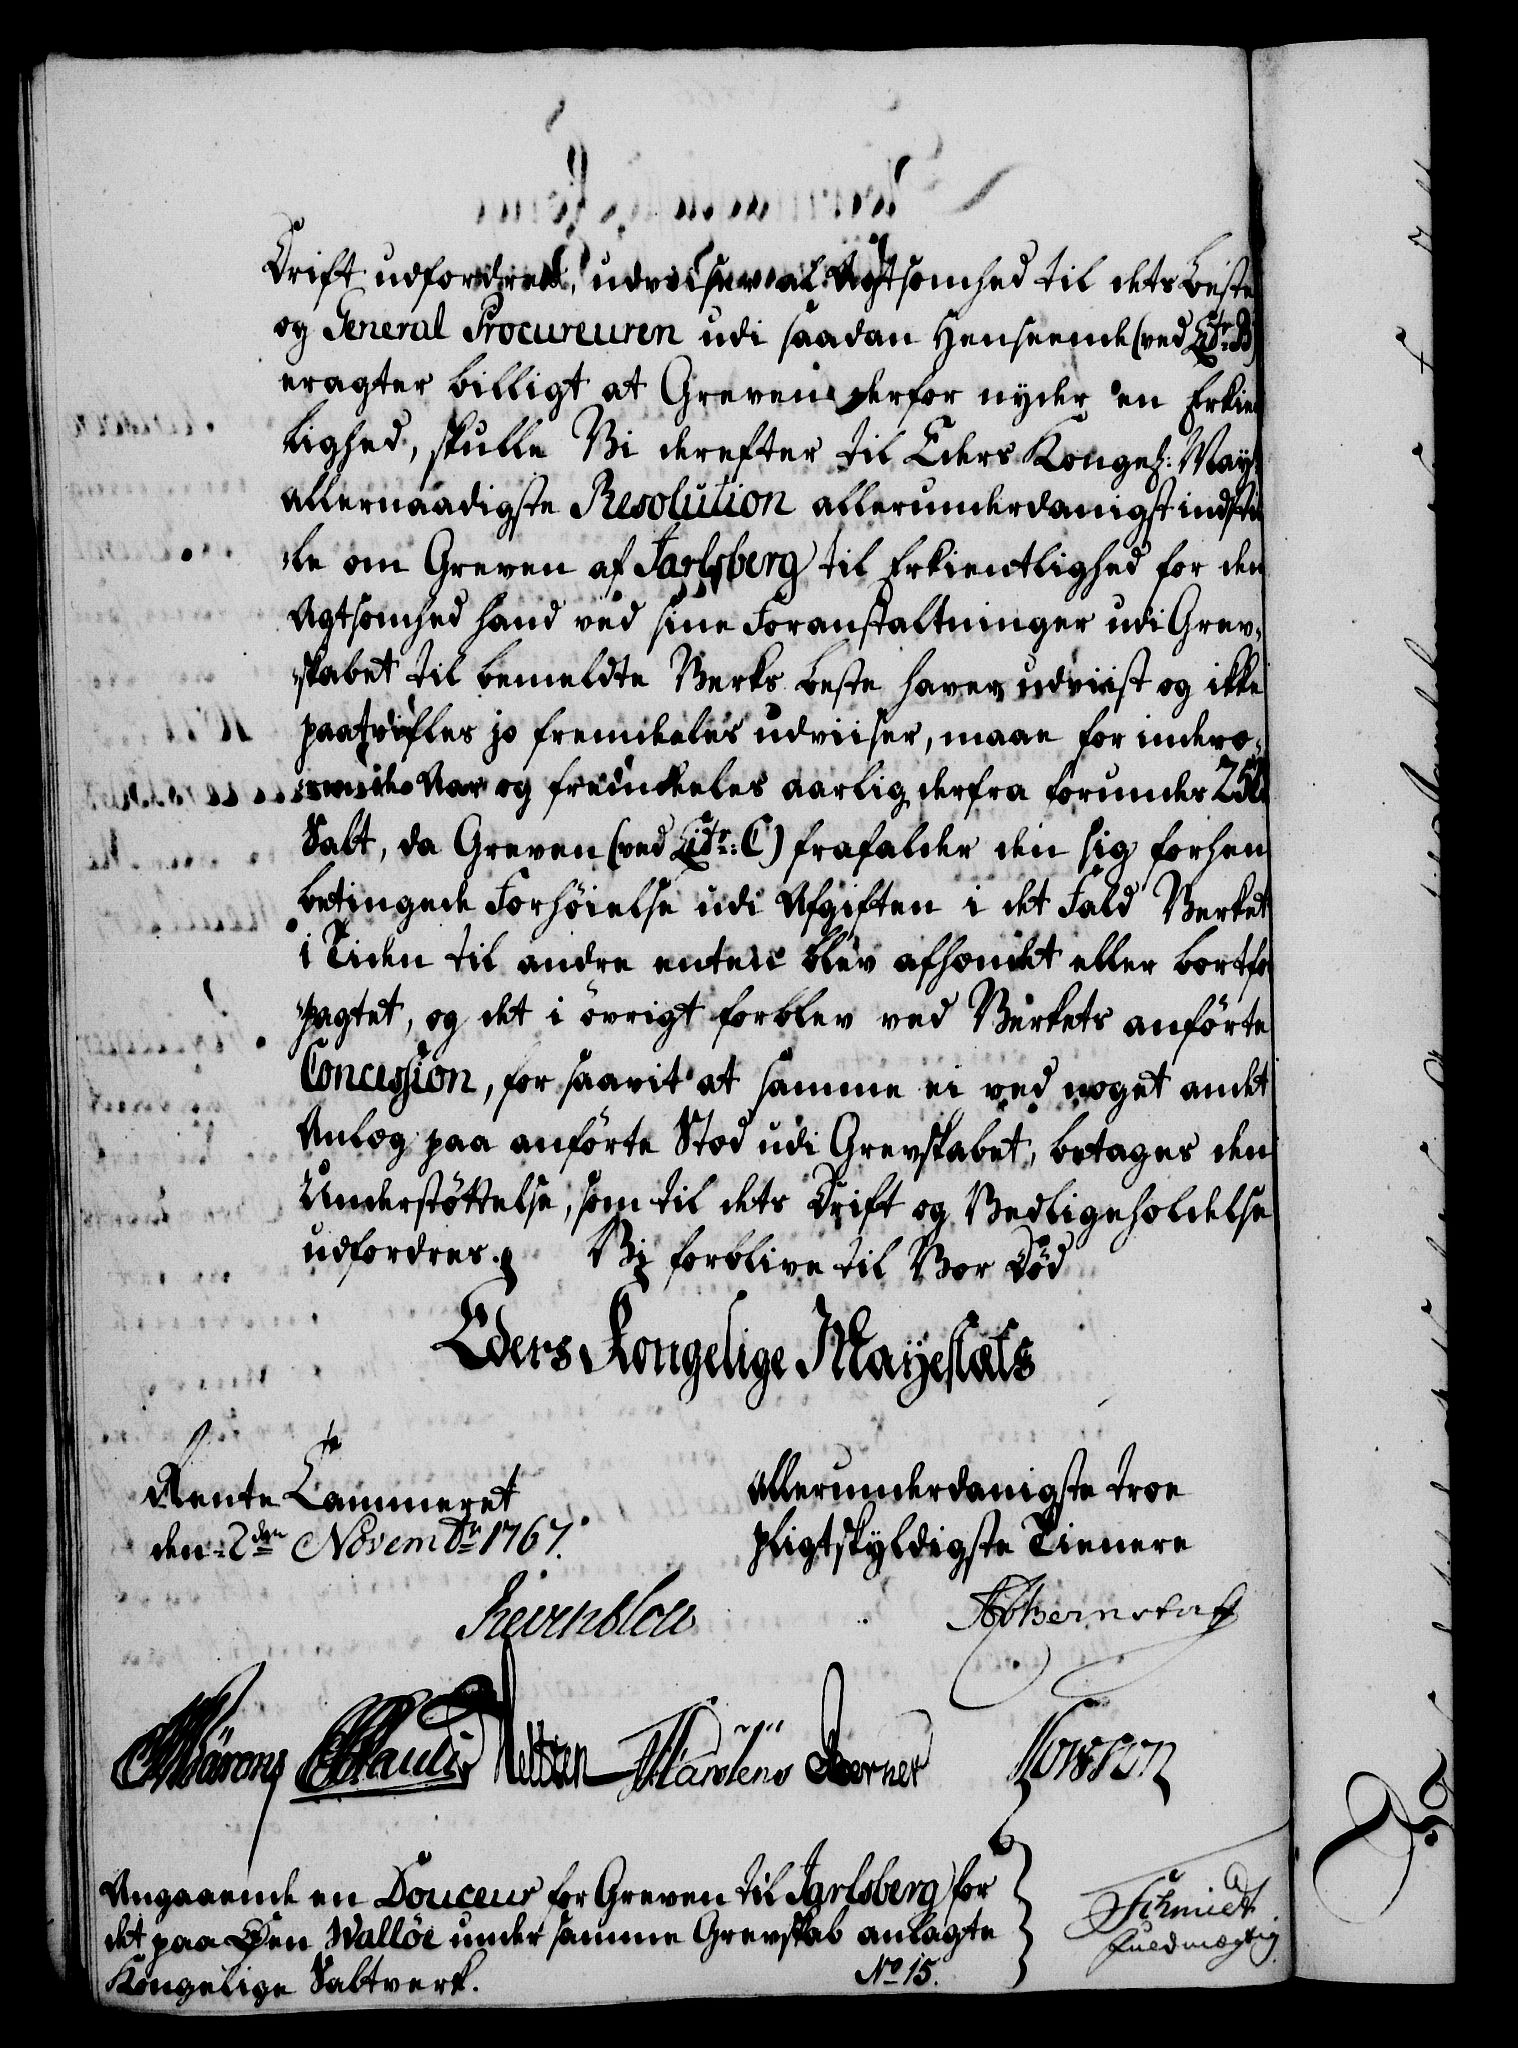 Drift udfordres, udviiser al Agtsomhed til dets beste
og General Procureuren udi saadan Henseende (ved Litr: B)
eragter billigt at Greven derfor nyder en Erkient
lighed, skulle Vi derefter til Eders Kongel: May:
allernaadigste Resolution allerunderdanigst indstil
-le om Greven af Jarlsberg til Erkientlighed for den
Agtsomhed hand ved sine Foranstaltninger udi Grev-
-skabet til bemeldte Verks beste haver udviist og ikke
paatvifles jo fremdeeles udviiser, maae for indevæ-
-rende Aar og fremdeeles aarlig derfra forundes
Salt, da Greven (ved Litr: C) frafalder den sig forhen
betingede Forhöielse udi Afgiften i det Fald Verket
i Tiden til andre enten blev afhændet eller bortfor
-pagtet, og det i övrigt forblev ved Verkets anförte
Concession, for saavit at samme ei ved noget andet
Anlæg paa anförte Stæd udi Grevskabet, betages den
Understöttelse, som til dets Drift og Vedligeholdelse
udfordres. Vi forblive til Vor Död
Eders Kongelige Mayestæts
Rente Cammeret
den 2den Novembr 1767.
allerunderdanigste troe
pligtskyldigste Tienere
Reventlow
Bernstorff
Pauli Neltzen Mardtens Berner
Schmidt
Fuldmægtig
Angaaende en Douceur for Greven til Jarlsberg for
det paa Öen Wallöe under samme Grevskab anlagte
Kongelige Saltverk.
No 15.